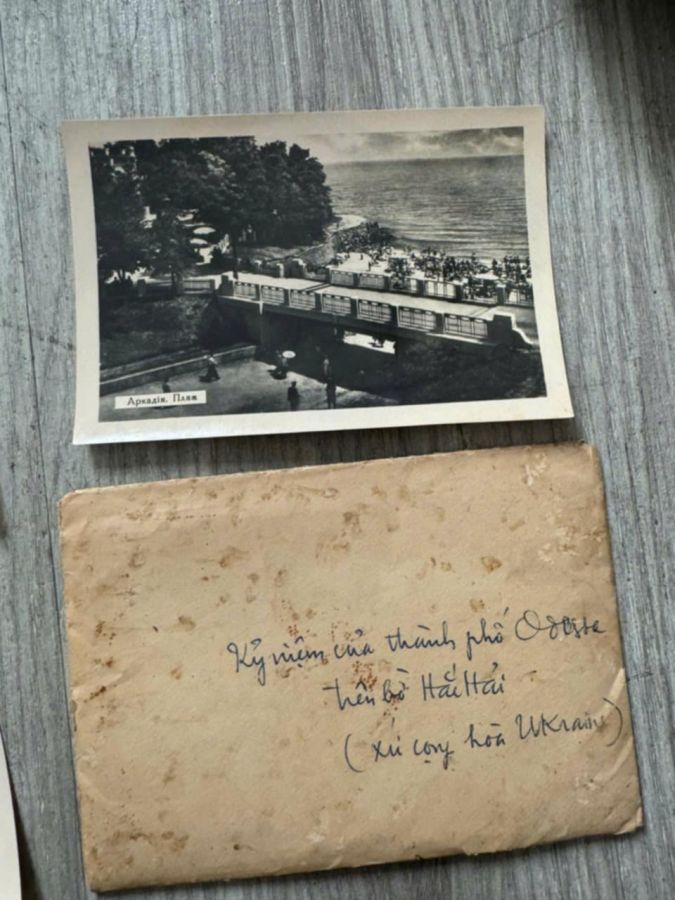 Аркадія. Пляж
Kỷ niệm của thành phố Odessa
trên bờ Hắc Hải
(xứ cộng hòa Ukraine)